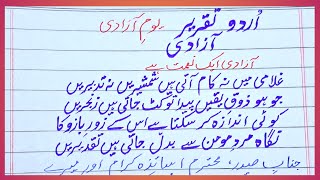 اُردو تقریر یومِ آزادی
آزادی
آزادی ایک نعمت ہے
غلامی میں نہ کام آتی ہیں شمشیریں نہ تدبیریں
جو ہو ذوقِ یقیں پیدا تو کٹ جاتی ہیں زنجیریں
کوئی اندازہ کر سکتا ہے اس کے زورِ بازو کا
نگاہِ مردِ مومن سے بدل جاتی ہیں تقدیریں
جنابِ صدر، محترم اساتذہ کرام اور میرے